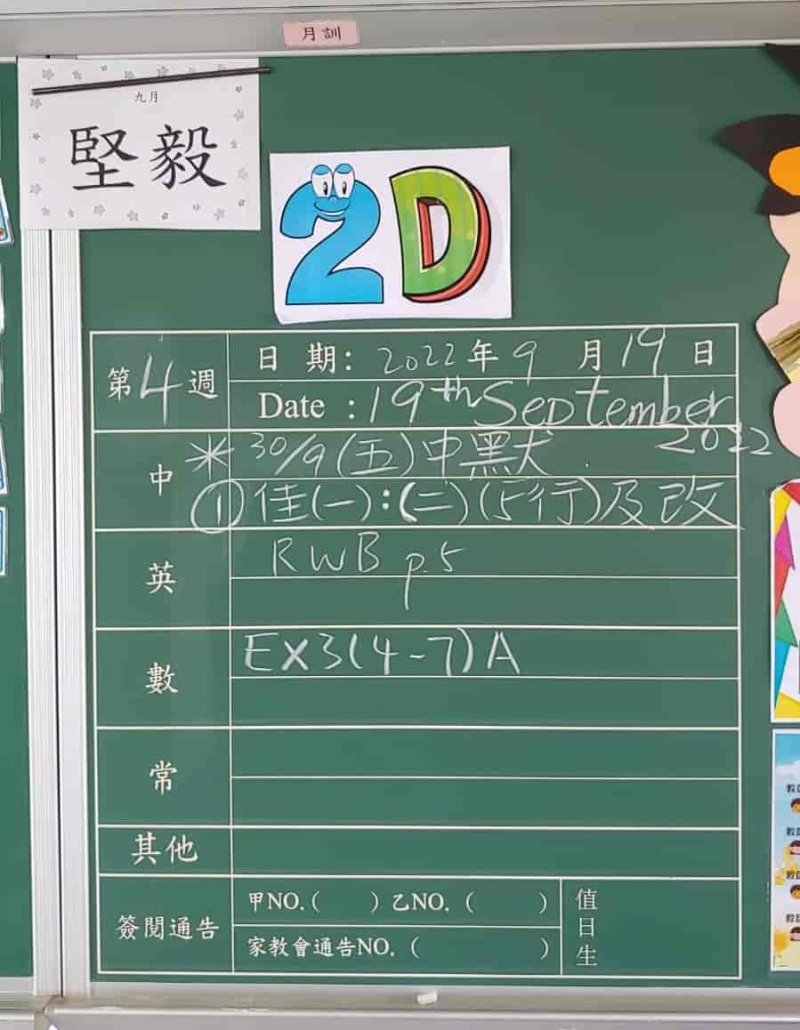 月訓
九月
堅毅
2D
第4週
日期: 2022年9月19日
Date : 19th September 2022
中
* 30/9(五)中默
① 佳(一):(二)(5行)及改
英
RWB p.5
數
EX3(4-7)A
常
其他
簽閱通告
甲NO.( ) 乙NO. ( )
家教會通告NO. ( )
值日生